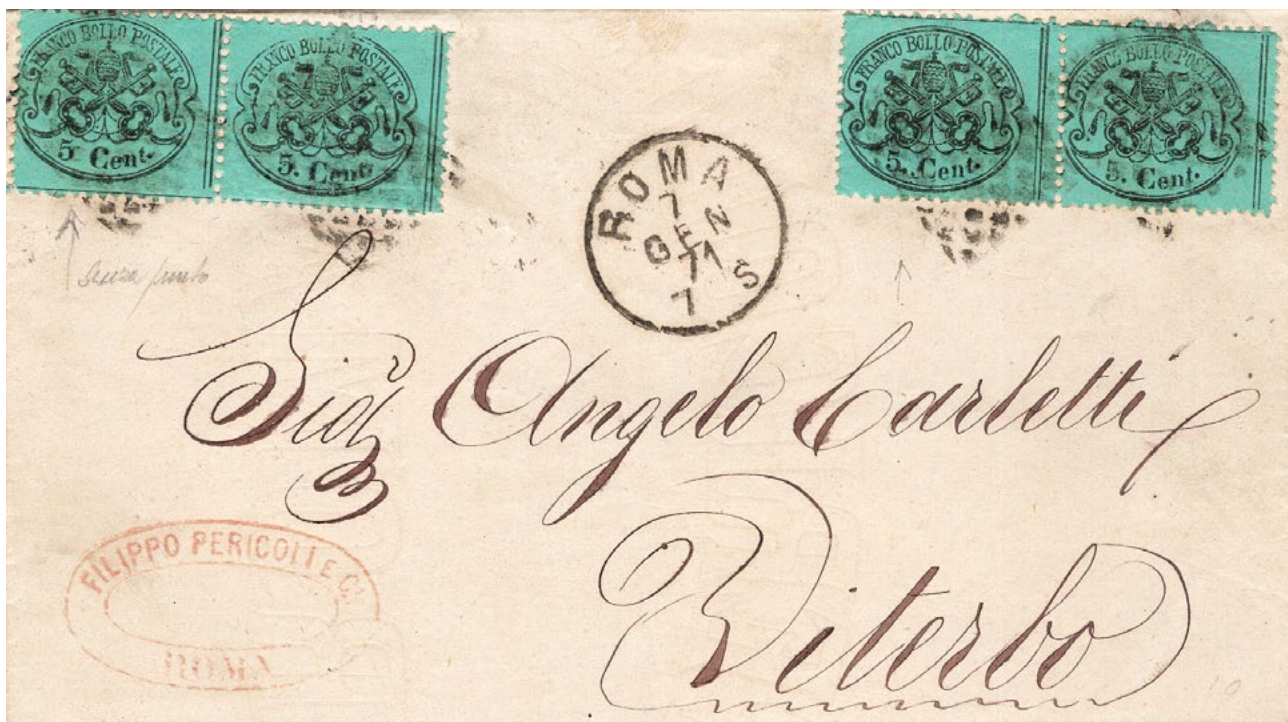 FRANCO BOLLO POSTALE
5 Cent.
FRANCO BOLLO POSTALE
5. Cent.
FRANCO BOLLO POSTALE
5. Cent.
FRANCO BOLLO POSTALE
5. Cent.
ROMA
7
GEN
71
7 S
senza punto
Sigr Angelo Carletti
Viterbo
FILIPPO PERICOLI E C.
ROMA
10